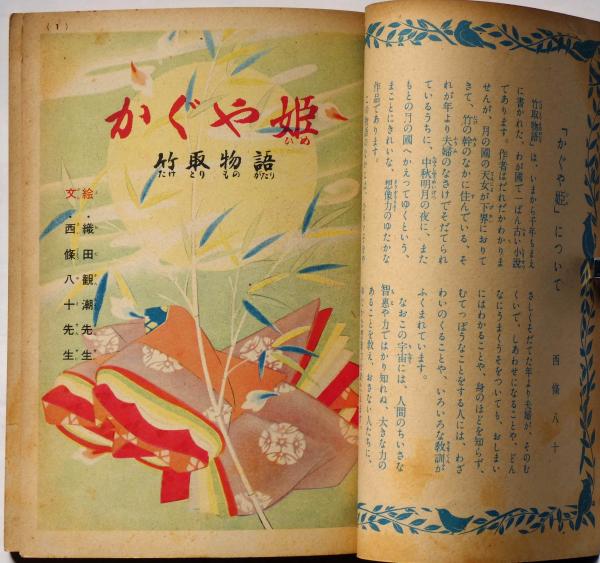 「かぐや姫」について
西條八十
「竹取物語」は、いまから千年もまえ
に書かれた、わが國で一ばん古い小説
であります。作者はだれだかわかりま
せんが、月の國の天女が下界におりて
きて、竹の幹のなかに住んでいる、そ
れが年より夫婦のなさけでそだてられ
ているうちに、中秋明月の夜に、また
もとの月の國へかえってゆくという、
まことにきれいな、想像力のゆたかな
作品であります。
さしくそだてた年より夫婦が、そのむ
くいで、しあわせになることや、どん
なにうまくうそをついても、おしまい
にはわかることや、身のほどを知らず、
むてっぽうなことをする人には、わざ
わいのくることや、いろいろな教訓が
ふくまれています。
なおこの宇宙には、人間のちいさな
智惠や力ではかり知れぬ、大きな力の
あることを教え、おさない人たちに、
(1)
かぐや姫
竹取物語
絵・織田観潮先生
文・西條八十先生